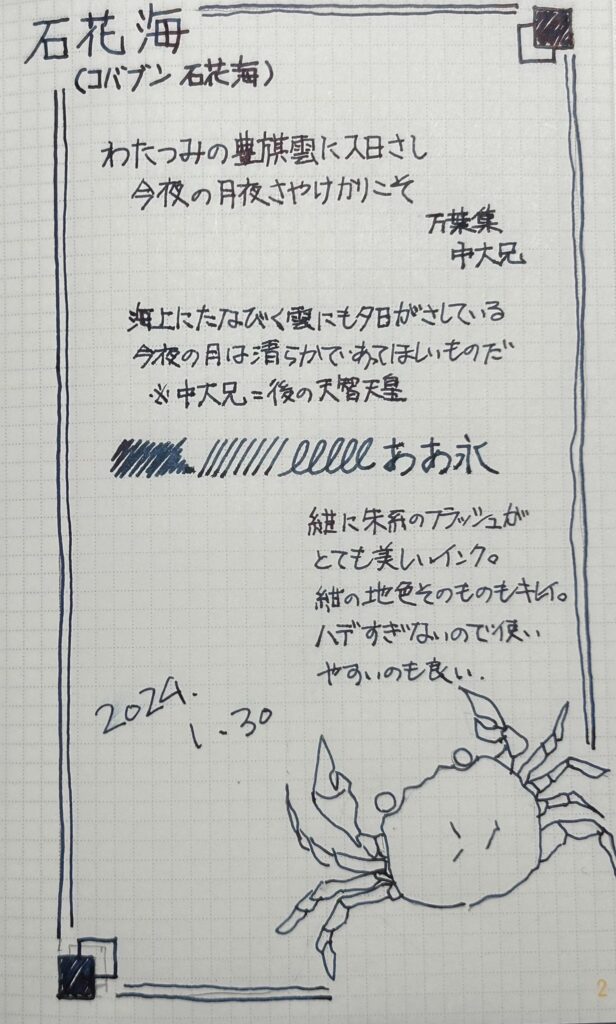 石花海
(コバブン 石花海)
わたつみの豊旗雲に入日さし
今夜の月夜さやけかりこそ
万葉集
中大兄
海上にたなびく雲にも夕日がさしている
今夜の月は清らかであってほしいものだ
※中大兄=後の天智天皇
あお永
紺に朱系のフラッシュが
とても美しいインク。
紺の地色そのものもキレイ。
ハデすぎないので使い
やすいのも良い.
2024.
1.30
2